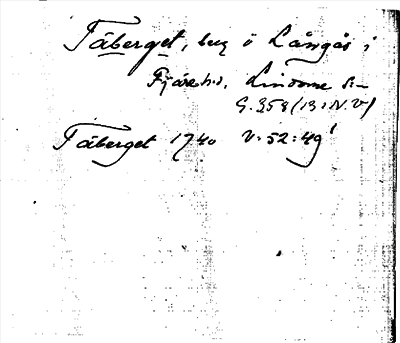 Tåberget, berg ö Långås i
Fjäre hd, Lindome sn
G. 358 (13 i N.V)
Tåberget 1740 V:52:49